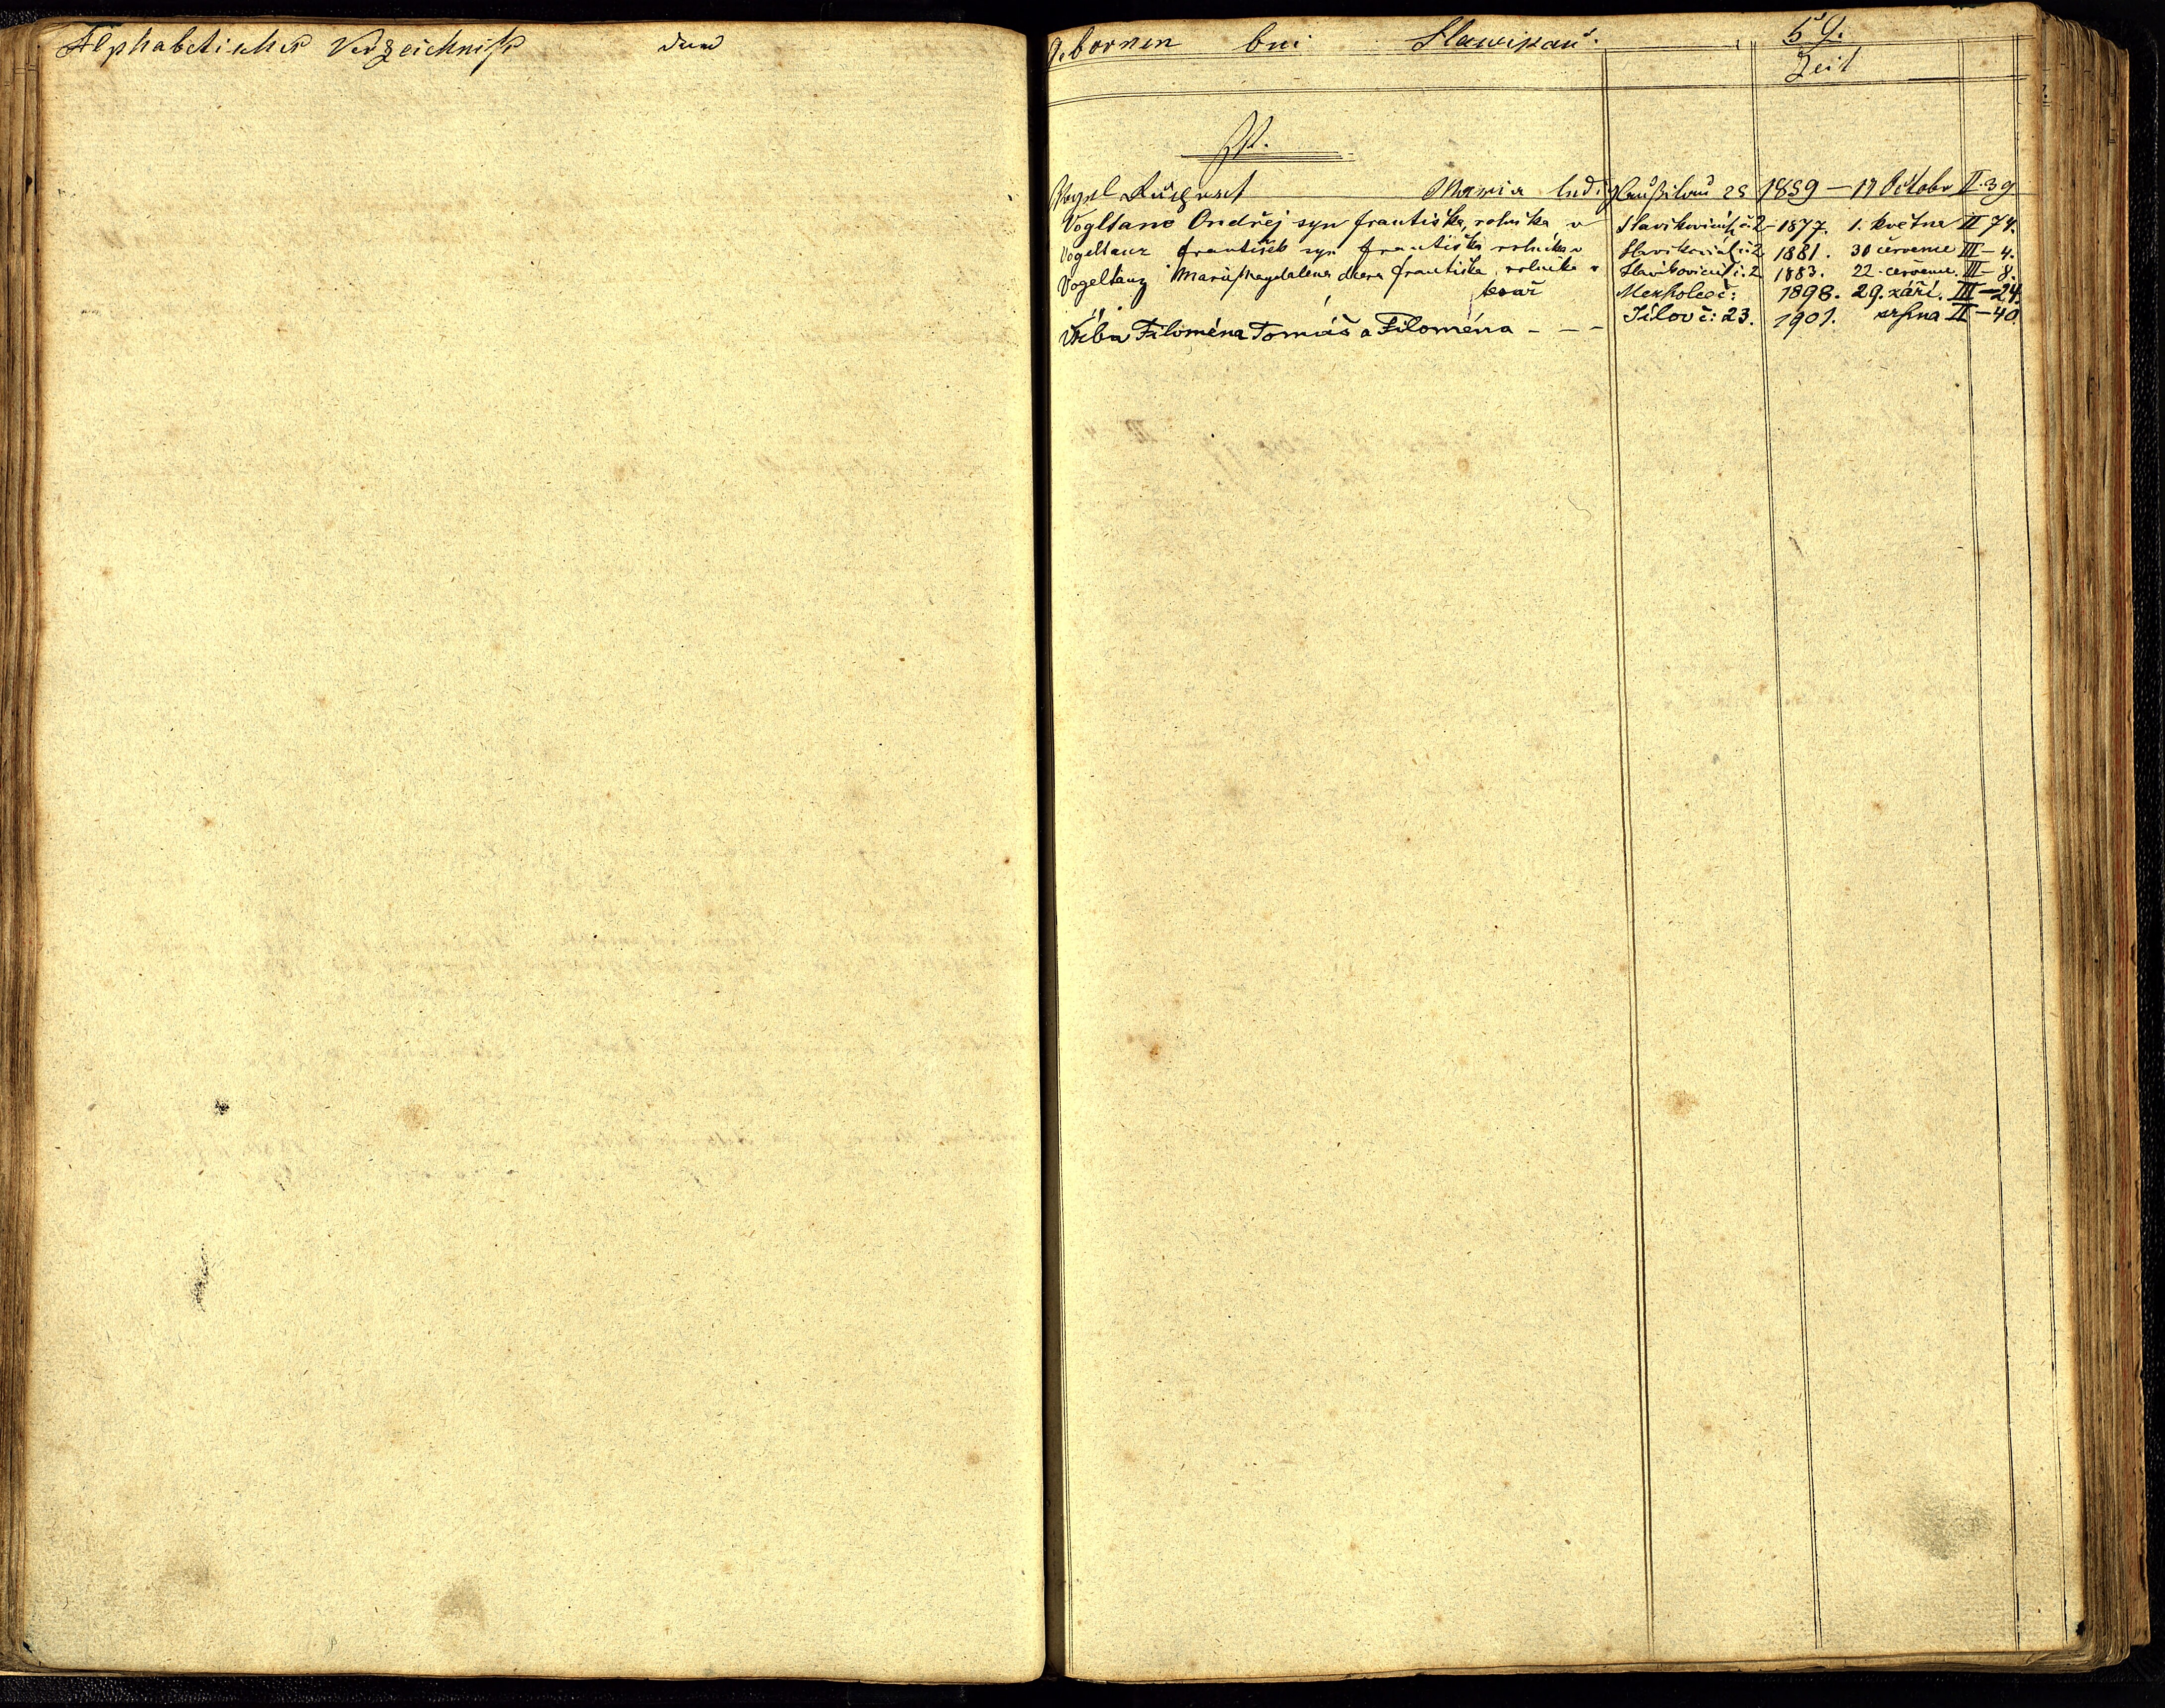 Alphabetisches Verzeichniß der
Gebornen bei Slawikau. 59.
Zeit
V.
Vogl August Maria ledig 25 1859 – 17 Octobr II 39
Vogltanc Ondřej syn Františka, rolníka v Slavíkovicích č. 2 – 1877. 1. května II 74.
Vogeltanz František syn Františka rolníka v Slavíkovicích č. 2 1881. 30 července III – 4.
Vogeltanz Marie Magdalena dcera Františka, rolníka v Slavíkovicích č. 2 1883. 22. července. III – 8.
kovář Mezholez č: 1898. 29. září. III – 24.
Vrba Filoména Tomáš a Filoména – – – Jílov č: 23. 1901. srpna II – 40.